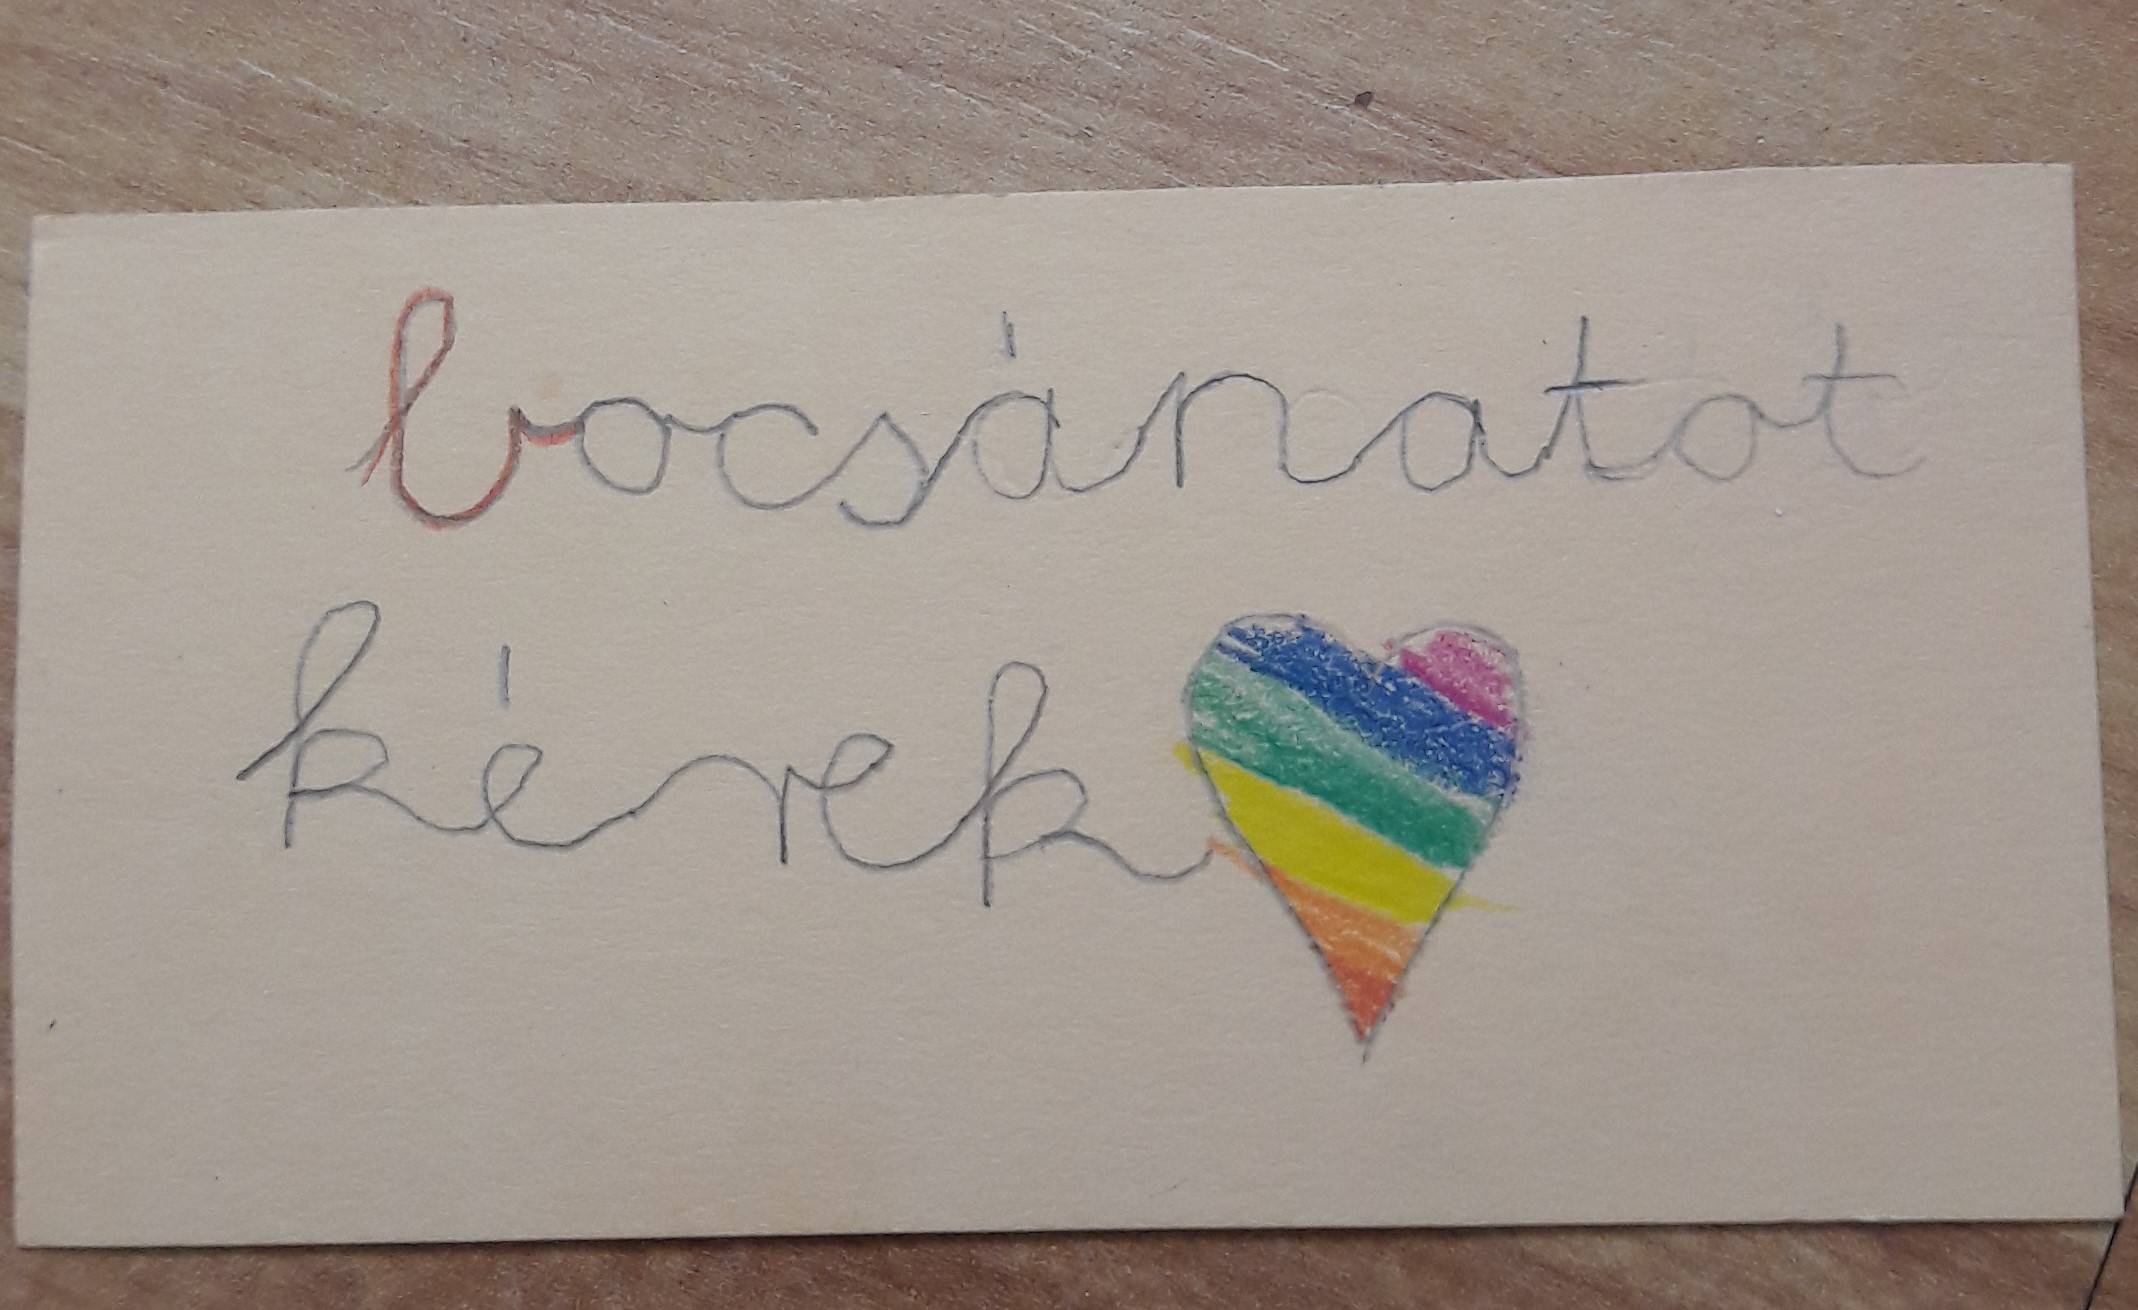 bocsánatot
kérek